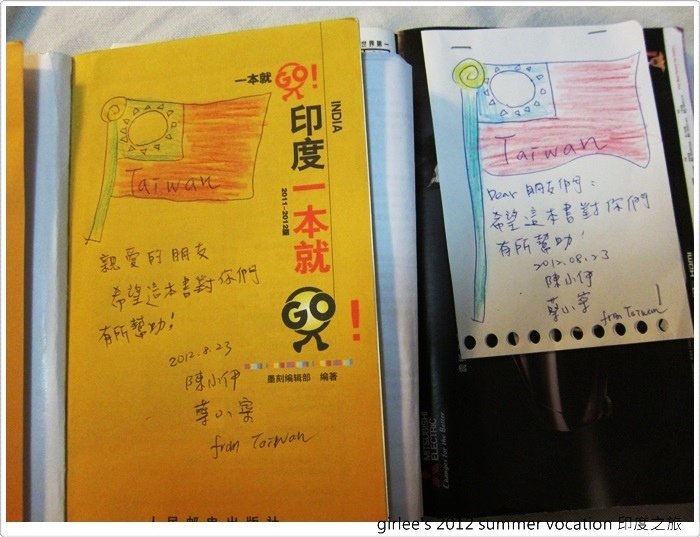 一本就GO!
INDIA
印度一本就
2011~2012版
GO!
墨刻编辑部 编著
人民邮电出版社
Taiwan
親愛的朋友
希望這本書對你們
有所幫助!
2012.8.23
陳小伊
from Taiwan
世界第一
Taiwan
Dear 朋友們:
希望這本書對你們
有所幫助!
2012.08.23
陳小伊
from Taiwan
MITSUBISHI
ELECTRIC
Changes for the Better
girlee's 2012 summer vocation 印度之旅